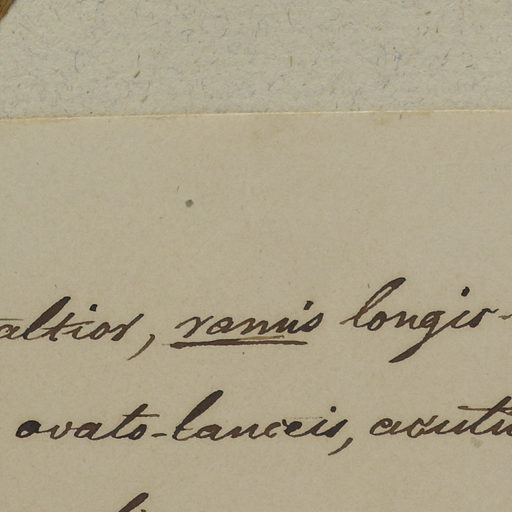 altior, ramis longio-
ovato-lanceis, acutiu